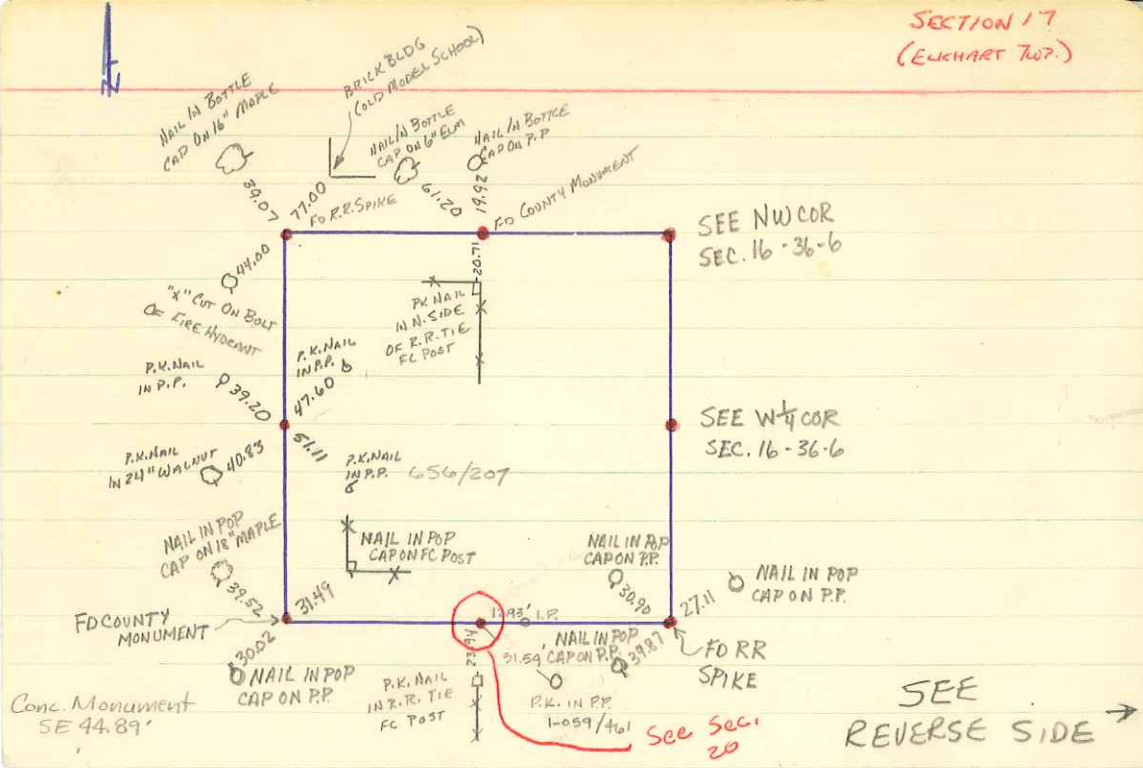 SECTION 17
(ELKHART TWP.)
N
NAIL IN BOTTLE
CAP ON 16" MAPLE
39.07
BRICK BLDG
(OLD MODEL SCHOOL)
77.00
NAIL IN BOTTLE
CAP ON 6" ELM
61.20
NAIL IN BOTTLE
CAP ON P.P
19.92
FD R.R. SPIKE
FD COUNTY MONUMENT
SEE NW COR
SEC. 16-36-6
44.00
"X" CUT ON BOLT
OF FIRE HYDRANT
20.71
PK NAIL
IN N. SIDE
OF R.R. TIE
FC POST
P.K. NAIL
IN P.P.
39.20
P.K. NAIL
IN P.P.
47.60
SEE W 1/4 COR
SEC. 16-36-6
P.K. NAIL
IN 24" WALNUT
40.83
51.11
P.K. NAIL
IN P.P.
656/207
NAIL IN POP
CAP ON 18" MAPLE
39.52
NAIL IN POP
CAP ON FC POST
31.49
NAIL IN POP
CAP ON P.P.
30.90
NAIL IN POP
CAP ON P.P.
27.11
FD COUNTY
MONUMENT
30.02
NAIL IN POP
CAP ON P.P.
I.P.
NAIL IN POP
CAP ON P.P.
39.87
FD RR
SPIKE
31.54'
P.K. NAIL
IN R.R. TIE
FC POST
P.K. IN P.P.
1-059/461
Conc. Monument
SE 44.89'
See Sec.
20
SEE
REVERSE SIDE